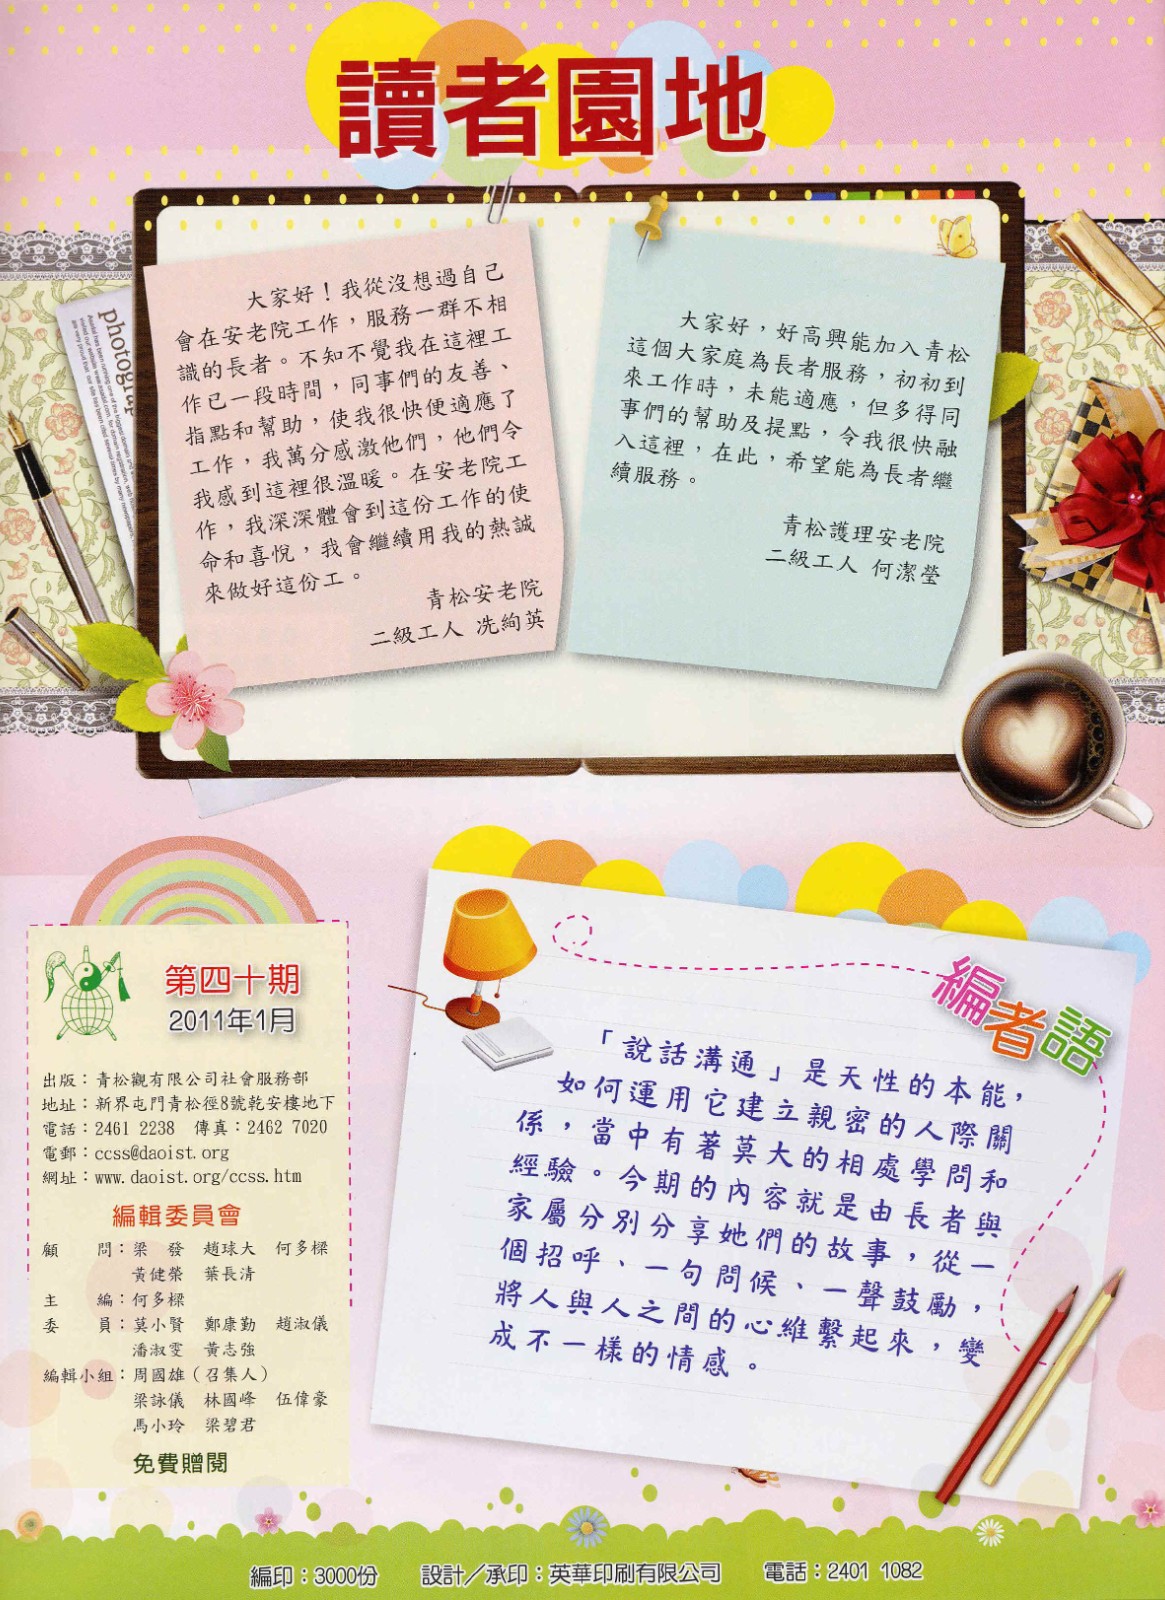 讀者園地
大家好！我從沒想過自己
會在安老院工作，服務一群不相
識的長者。不知不覺我在這裡工
作已一段時間，同事們的友善、
指點和幫助，使我很快便適應了
工作，我萬分感激他們，他們令
我感到這裡很溫暖。在安老院工
作，我深深體會到這份工作的使
命和喜悅，我會繼續用我的熱誠
來做好這份工。
青松安老院
二級工人 冼絢英
大家好，好高興能加入青松
這個大家庭為長者服務，初初到
來工作時，未能適應，但多得同
事們的幫助及提點，令我很快融
入這裡，在此，希望能為長者繼
續服務。
青松護理安老院
二級工人 何潔瑩
第四十期
2011年1月
出版：青松觀有限公司社會服務部
地址：新界屯門青松徑8號乾安樓地下
電話：2461 2238 傳真：2462 7020
電郵：ccss@daoist.org
網址：www.daoist.org/ccss.htm
編輯委員會
顧 問：梁 發 趙球大 何多樑
黃健榮 葉長清
主 編：何多樑
委 員：莫小賢 鄭康勤 趙淑儀
潘淑雯 黃志強
編輯小組：周國雄（召集人）
梁詠儀 林國峰 伍偉豪
馬小玲 梁碧君
免費贈閱
編者語
「說話溝通」是天性的本能，
如何運用它建立親密的人際關
係，當中有著莫大的相處學問和
經驗。今期的內容就是由長者與
家屬分別分享她們的故事，從一
個招呼、一句問候、一聲鼓勵，
將人與人之間的心維繫起來，變
成不一樣的情感。
編印：3000份 設計／承印：英華印刷有限公司 電話：2401 1082